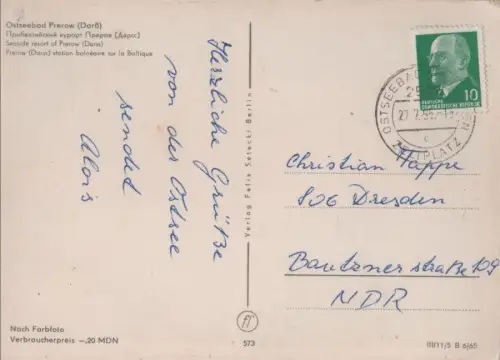 Ostseebad Prerow (Darß)
Прибалтийский курорт Преров (Дарс)
Seaside resort of Prerow (Darss)
Prerow (Darss) station balnéaire sur la Baltique
Herzliche Grüße
von der Ostsee
sendet
Alois
Nach Farbfoto
Verbraucherpreis —,20 MDN
Verlag Felix Setecki Berlin
573
10
DEUTSCHE
DEMOKRATISCHE REPUBLIK
OSTSEEBAD
ZELTPLATZ
Christian Pappe
806 Dresden
Bautzner straße 109
NDR
III/11/5 B 6/65